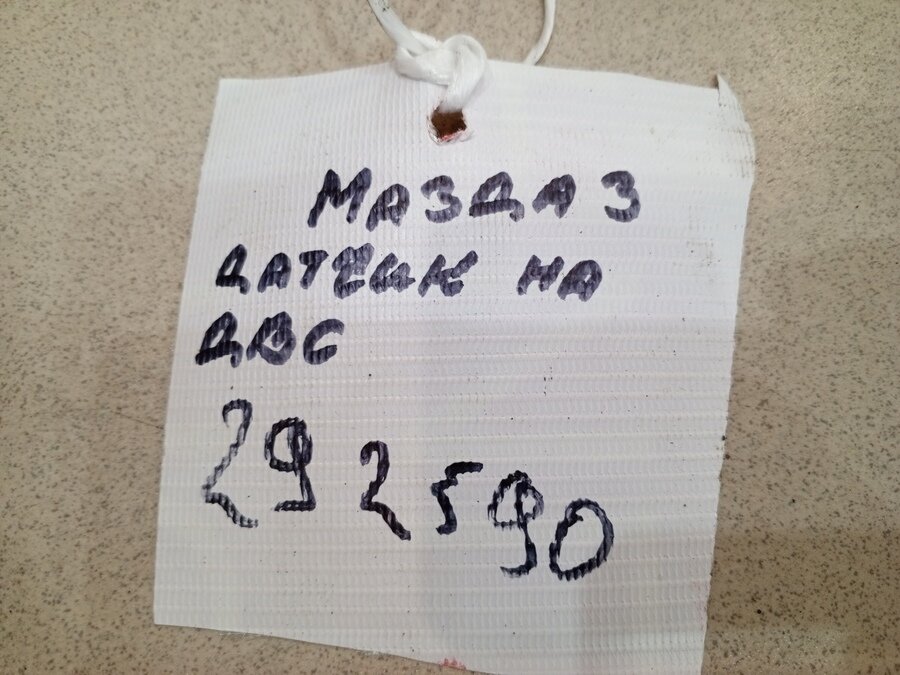 МАЗДА 3
ДАТЧИК НА
ДВС
29 2590